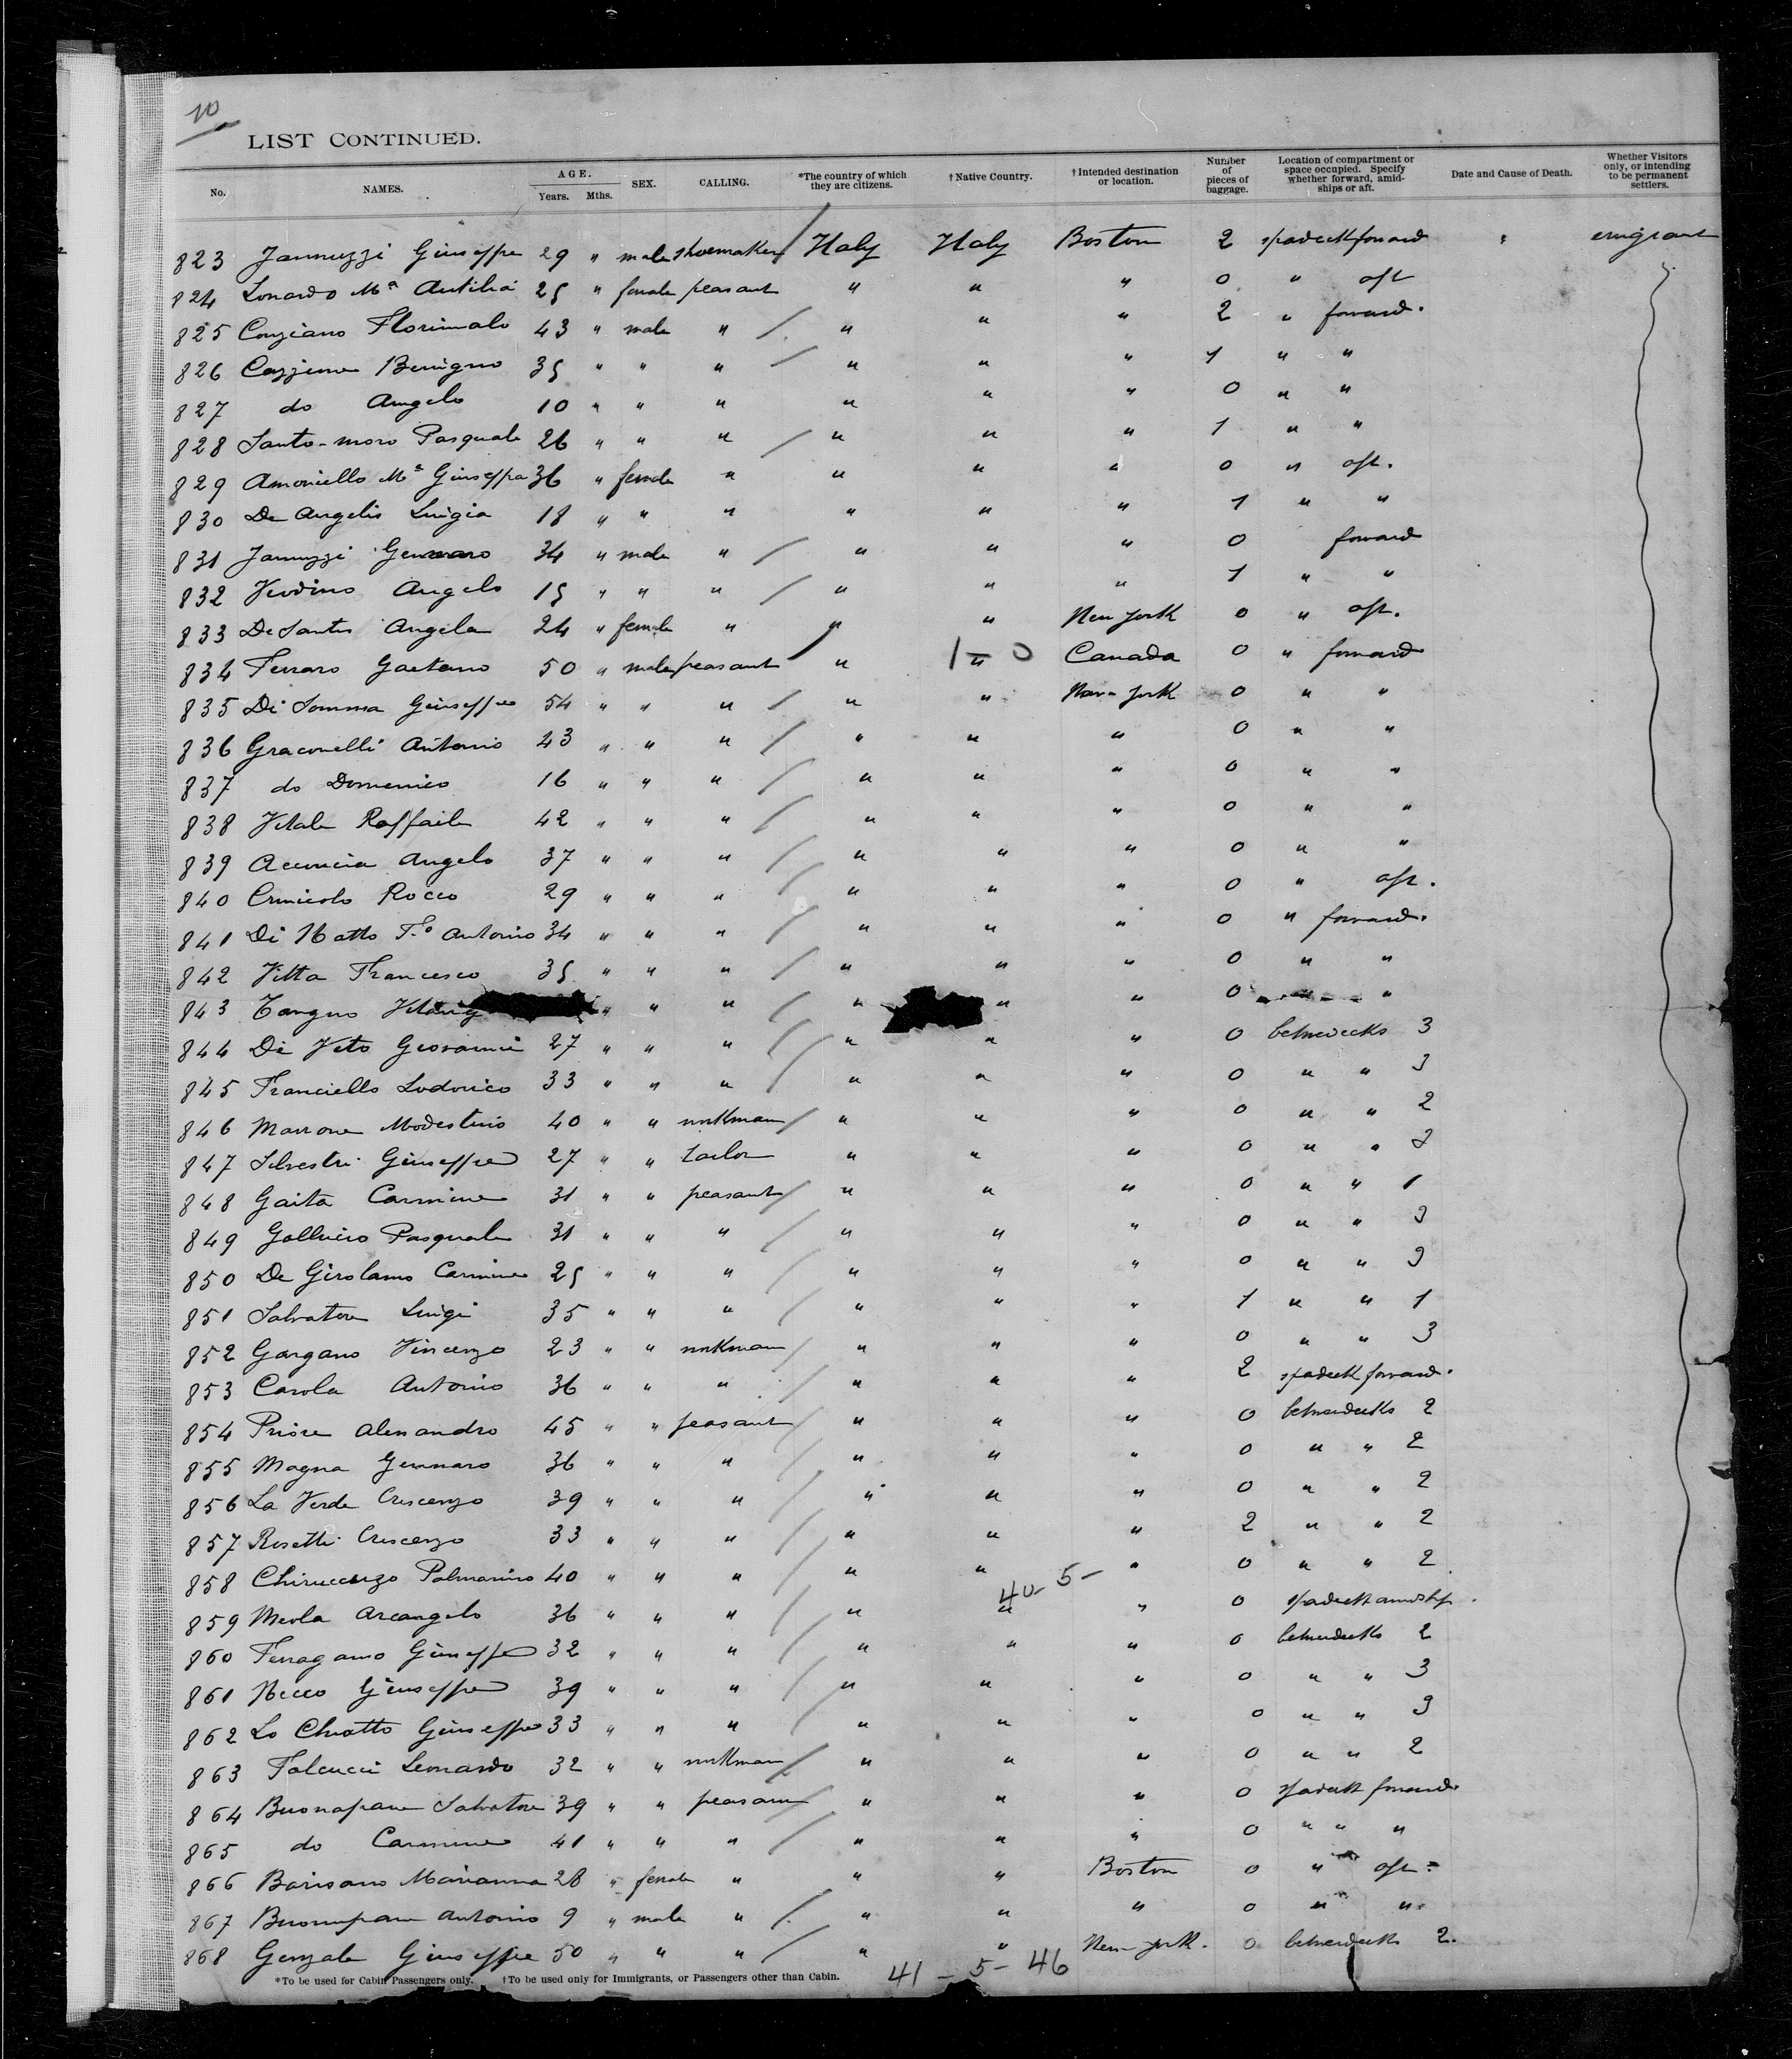 10
LIST CONTINUED.
No. NAMES. AGE. Years. Mths. SEX. CALLING. *The country of which they are citizens. †Native Country. †Intended destination or location. Number of pieces of baggage. Location of compartment or space occupied. Specify whether forward, amidships or aft. Date and Cause of Death. Whether Visitors only, or intending to be permanent settlers.
823 Jannuzzi Giuseppe 29 " male shoemaker Italy Italy Boston 2 spadeck forward " emigrant
824 Lonardo Mª Antilia 25 " female peasant " " " 0 " aft
825 Conziano Florimalo 43 " male " " " " 2 " forward.
826 Cazzene Benigno 35 " " " " " " 1 " "
827 do Angelo 10 " " " " " " 0 " "
828 Santo-moro Pasquale 26 " " " " " " 1 " "
829 Amoniello Mª Giuseppa 36 " female " " " " 0 " aft.
830 De Angelis Luigia 18 " " " " " " 1 " "
831 Jannuzzi Gennaro 34 " male " " " " 0 forward
832 Verdino Angelo 15 " " " " " " 1 " "
833 De Santis Angela 24 " female " " " New York 0 " aft.
834 Ferraro Gaetano 50 " male peasant " 1 - 0 " Canada 0 " forward
835 Di Somma Giuseppe 54 " " " " " New York 0 " "
836 Graconelli Antonio 43 " " " " " " 0 " "
837 do Domenico 16 " " " " " " 0 " "
838 Vitale Raffaele 42 " " " " " " 0 " "
839 Acuncia Angelo 37 " " " " " " 0 " "
840 Crnicolo Rocco 29 " " " " " " 0 " aft.
841 Di Natto F.º Antonio 34 " " " " " " 0 " forward.
842 Vitta Francesco 35 " " " " " " 0 " "
843 Tangno " " " " " " 0 "
844 De Vito Giovanni 27 " " " " " " 0 betwedecks 3
845 Franciello Lodovico 33 " " " " " " 0 " " 3
846 Marrone Modestino 40 " " workman " " " 0 " " 2
847 Silvestri Giuseppe 27 " " tailor " " " 0 " " 3
848 Gaita Carmine 31 " " peasant " " " 0 " " 1
849 Gallucio Pasquale 31 " " " " " " 0 " " 3
850 De Girolamo Carmine 25 " " " " " " 0 " " 3
851 Salvatore Luigi 35 " " " " " " 1 " " 1
852 Gargano Vincenzo 23 " " workman " " " 0 " " 3
853 Carola Antonio 36 " " " " " " 2 spadeck forward.
854 Priore Alessandro 45 " " peasant " " " 0 betwedecks 2
855 Magna Gennaro 36 " " " " " " 0 " " 2
856 La Verde Crescenzo 39 " " " " " " 0 " " 2
857 Rosetti Crescenzo 33 " " " " " " 2 " " 2
858 Chiruccuzo Palmarino 40 " " " " " " 0 " " 2
40 - 5 -
859 Meola Arcangelo 36 " " " " " " 0 spadeck amidshp.
860 Ferragamo Giuseppe 32 " " " " " " 0 betwedecks 2
861 Necco Giuseppe 39 " " " " " " 0 " " 3
862 Lo Chiatto Giuseppe 33 " " " " " " 0 " " 3
863 Falcucci Leonardo 32 " " workman " " " 0 " " 2
864 Buonapane Salvatore 39 " " peasant " " " 0 spadeck forward.
865 do Carmine 41 " " " " " " 0 " " "
866 Barisano Marianna 28 " female " " " Boston 0 " aft.
867 Buonapane Antonio 9 " male " " " " 0 " "
868 Genzale Giuseppe 50 " " " " " New York. 0 betwedecks 2.
*To be used for Cabin Passengers only. †To be used only for Immigrants, or Passengers other than Cabin. 41 - 5 - 46